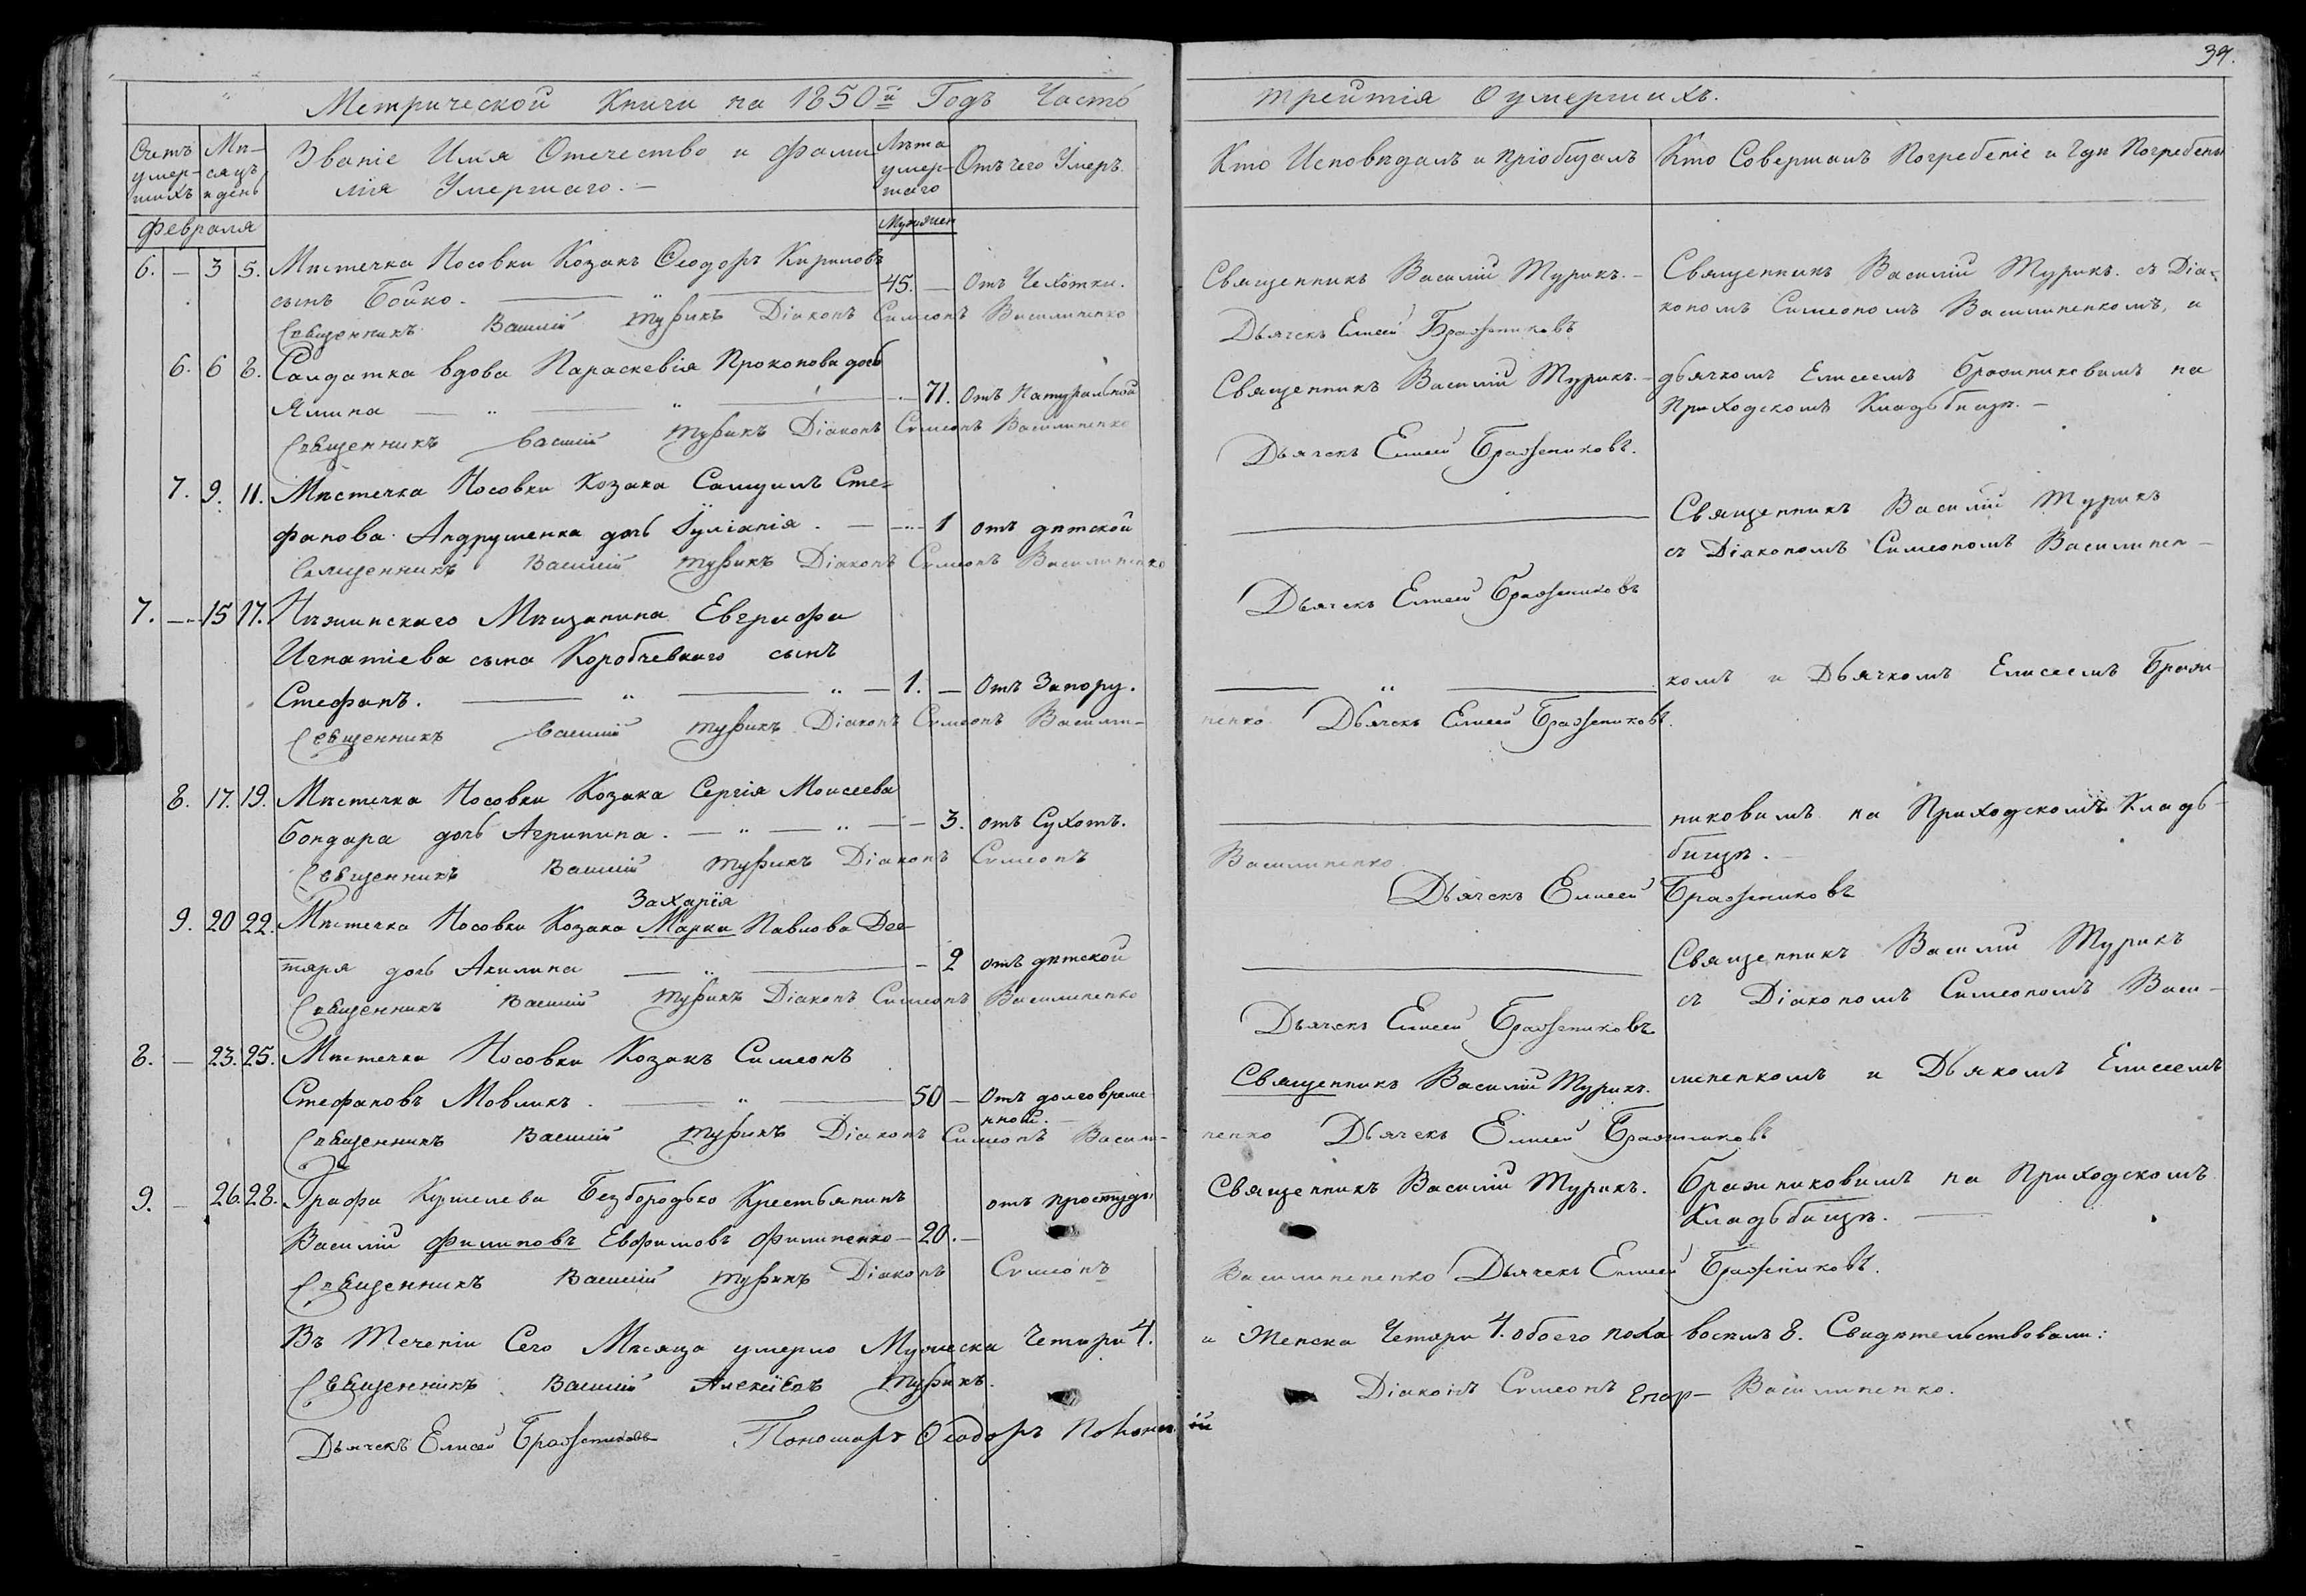 39.
Метрической Книги на 1850й Годъ Часть
третія О умершихъ.
Счетъ умер- шихъ
Мѣ- сяцъ и день
Званіе Имя Отечество и Фами
лія Умершаго. —
Лѣта умер- шаго
Отъ чего Умеръ.
Кто Исповѣдалъ и пріобщалъ
Кто Совершалъ Погребеніе и Гдѣ Погребены
Февраля
Муж жен
6. — 3 5. Мѣстечка Носовки Козакъ Ѳеодоръ Кириловъ
сынъ Бойко. — „ — 45. — Отъ Чехотки.
Священникъ Василій Турикъ Діаконъ Симеонъ Василиненко
Священникъ Василій Турикъ. —
Дьячекъ Елисей Бражниковъ
Священникъ Василій Турикъ. съ Діа-
кономъ Симеономъ Василиненкомъ, и
6. 6 8. Салдатка вдова Параскевія Прокопова дочь
Ямина — „ — „ — 71. Отъ Натуральной
Священникъ Василій Турикъ Діаконъ Симеонъ Василиненко
Священникъ Василій Турикъ. —
Дьячекъ Елисей Бражниковъ.
дьячкомъ Елисеемъ Бражниковимъ на
Приходскомъ Кладьбищѣ. —
7. 9. 11. Мѣстечка Носовки Козака Самуилъ Сте-
фанова Андрушенка дочь Іуліанія. — 1 отъ дѣтской
Священникъ Василій Турикъ Діаконъ Симеонъ Василиненко
Дьячекъ Елисей Бражниковъ
Священникъ Василій Турикъ
съ Діакономъ Симеономъ Василинен-
7. — 15 17. Нѣжинскаго Мѣщанина Евграфа
Игнатіева сына Коробчевкаго сынъ
Стефанъ. — „ — „ — 1. — Отъ Запору.
Священникъ Василій Турикъ Діаконъ Симеонъ Васили-
— „ —
ненко Дьячекъ Елисей Бражниковъ.
комъ и Дьячкомъ Елисеемъ Браж-
8. 17. 19. Мѣстечка Носовки Козака Сергія Моисеева
Бондара дочь Агрипина. — „ — „ — 3. отъ Сухотъ.
Священникъ Василій Турикъ Діаконъ Симеонъ
Василиненко
Дьячекъ Елисей Бражниковъ
никовимъ на Приходскомъ Кладь-
бищѣ. —
Захарія
9. 20 22. Мѣстечка Носовки Козака Марка Павлова Дег-
тяря дочь Акилина — „ — 2 отъ дѣтской
Священникъ Василій Турикъ Діаконъ Симеонъ Василиненко
Дьячекъ Елисей Бражниковъ
Священникъ Василій Турикъ
съ Діакономъ Симеономъ Васи-
8. — 23. 25. Мѣстечка Носовки Козакъ Симеонъ
Стефановъ Мовликъ. — „ — 50 — Отъ долговреме-
нной. —
Священникъ Василій Турикъ Діаконъ Симеонъ Васили-
Священникъ Василій Турикъ.
ненко Дьячекъ Елисей Бражниковъ
линенкомъ и Дьякомъ Елисеемъ
9. — 26. 28. Графа Кушелева Безбородько Крестьянинъ отъ простуды
Василій Филиповъ Евфимовъ Филипенко — 20. —
Священникъ Василій Турикъ Діаконъ Симеонъ
Священникъ Василій Турикъ.
Василиненко Дьячекъ Елисей Бражниковъ.
Бражниковимъ на Приходскомъ
Кладьбищѣ. —
Въ Теченіи Сего Мѣсяца умерло Мужеска Четыри 4.
и Женска Четыри 4. обоего пола восемь 8. Свидѣтельствовали:
Священникъ Василій Алексіевъ Турикъ.
Діаконъ Симеонъ Василиненко.
Дьячекъ Елисей Бражниковъ Пономарь Ѳеодоръ